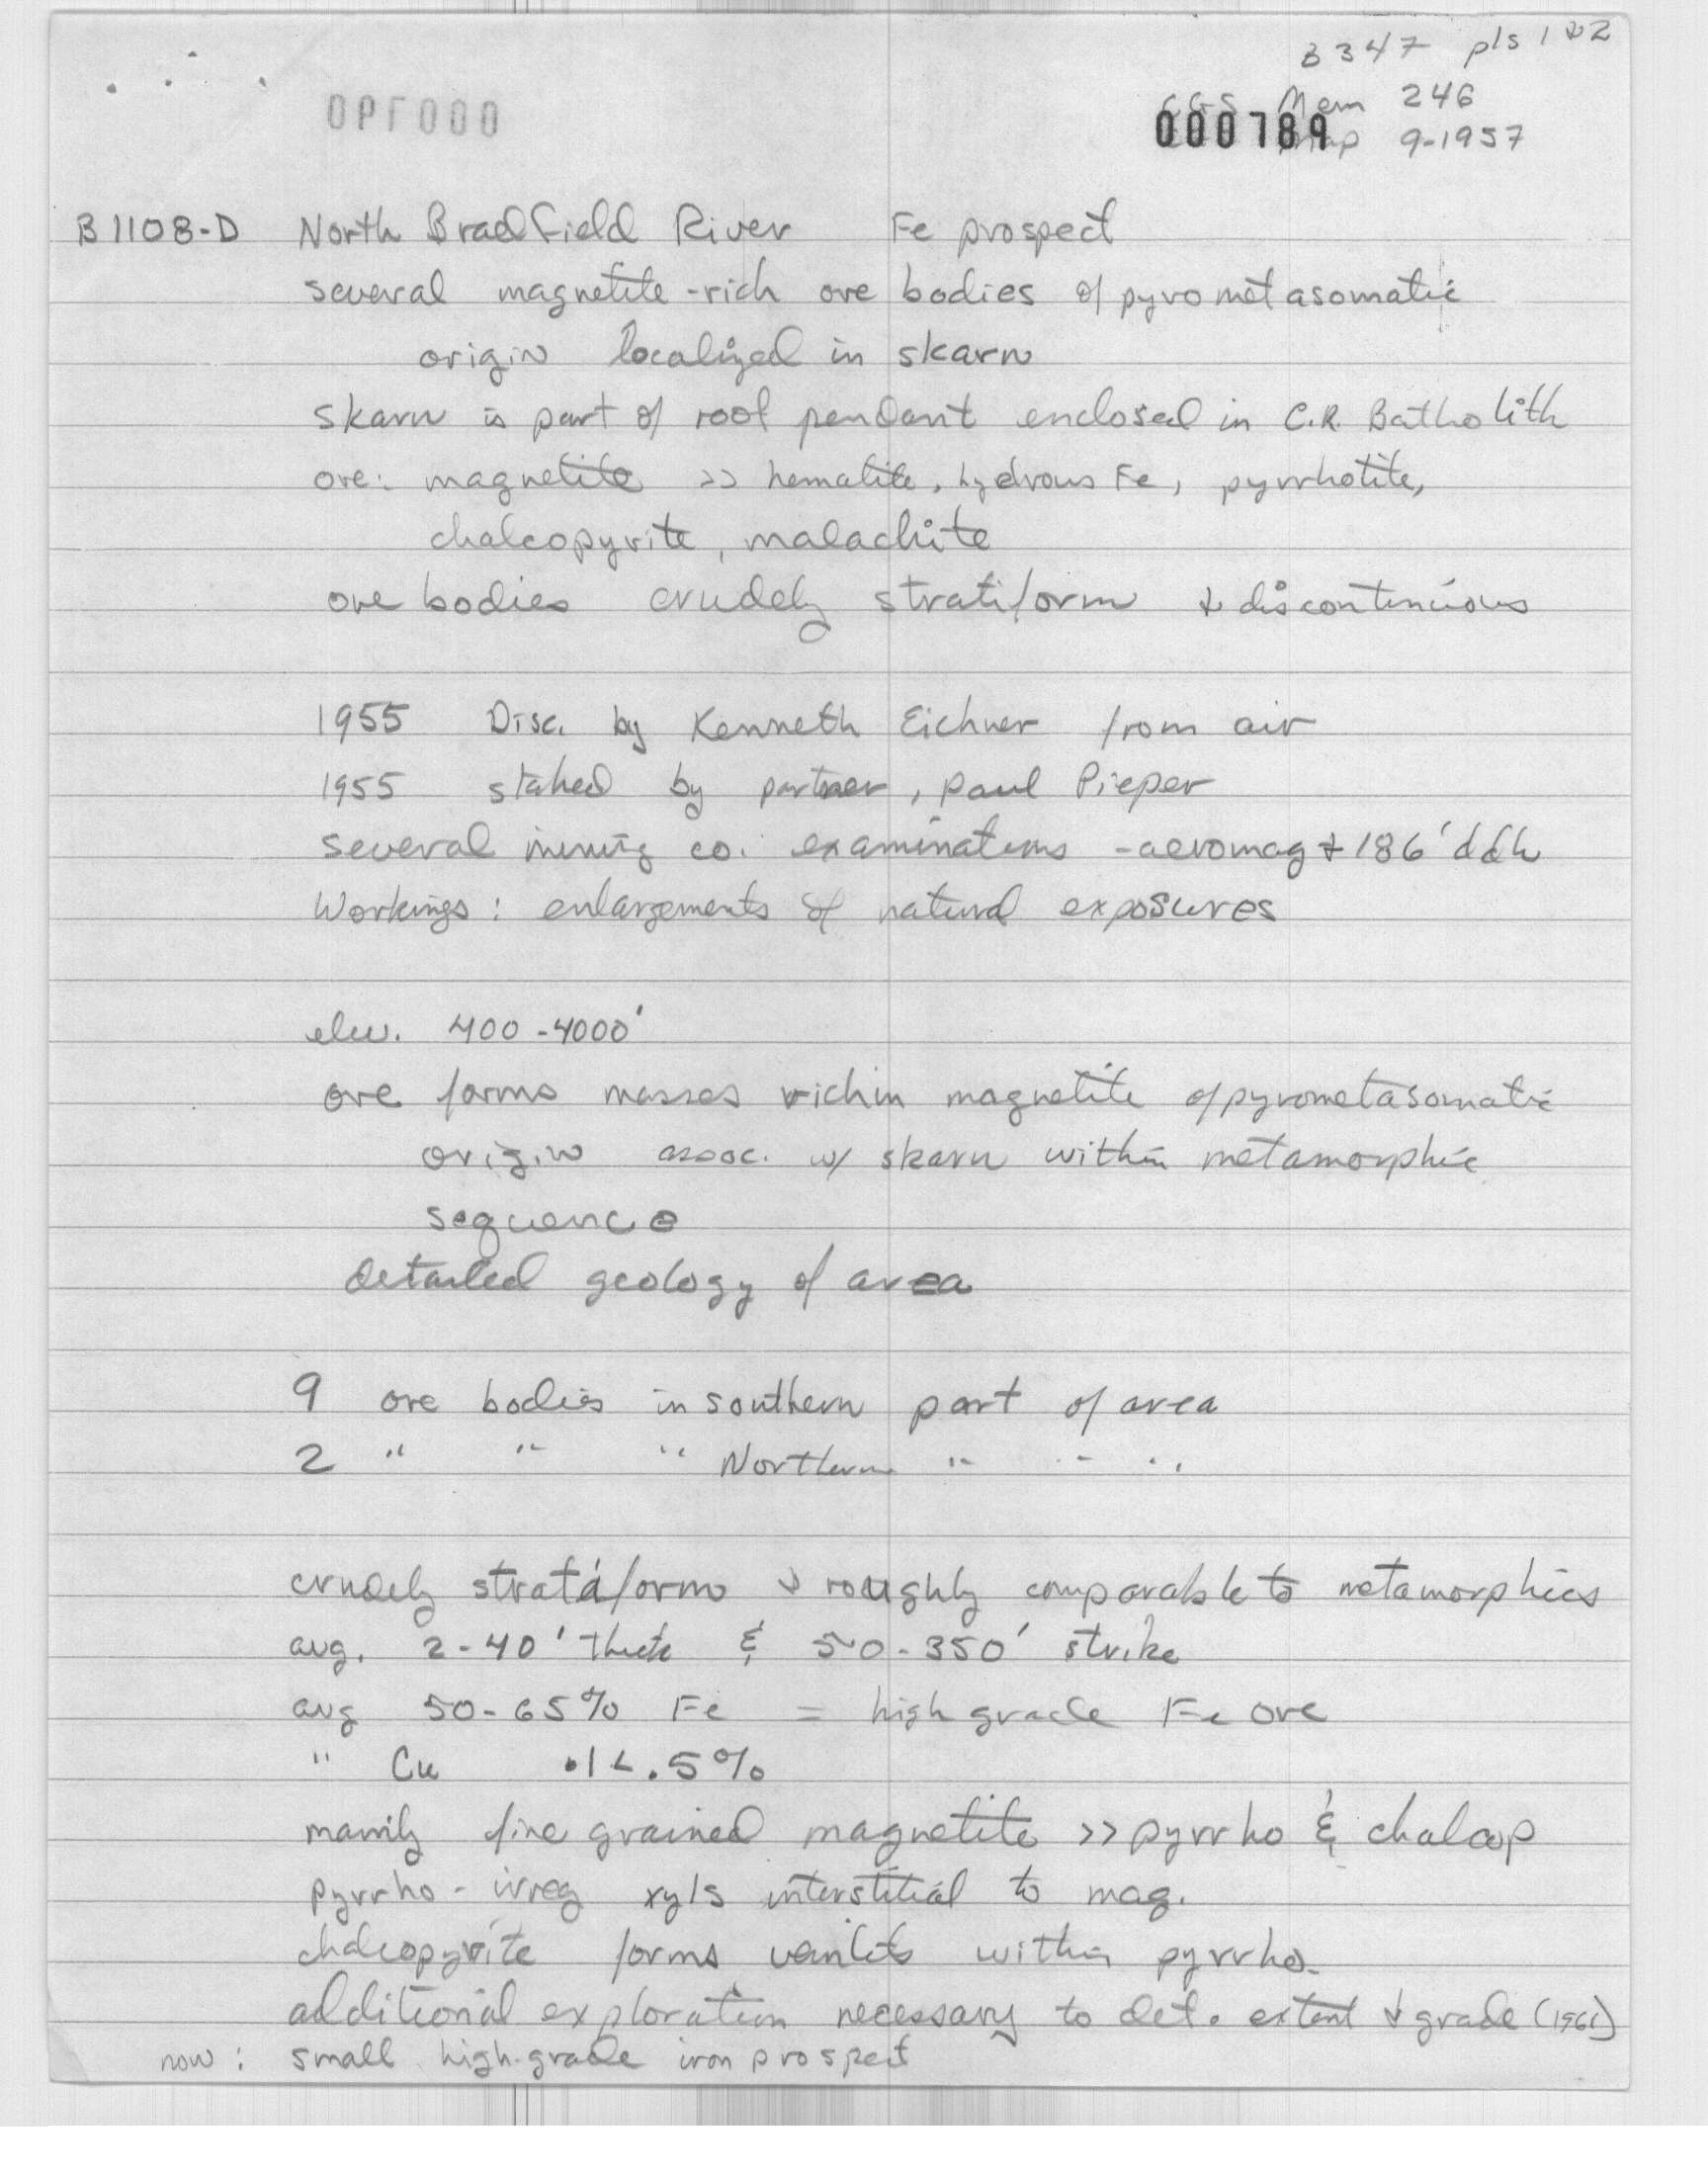 B 347 pls 1 & 2
OPF000
CGS Mem 246
000789
Map 9-1957
B 1108-D North Bradfield River Fe prospect
several magnetite-rich ore bodies of pyrometasomatic
origin localized in skarn
skarn is part of roof pendant enclosed in C.R. Batholith
ore: magnetite >> hematite, hydrous Fe, pyrrhotite,
chalcopyrite, malachite
ore bodies crudely stratiform & discontinuous
1955 Disc. by Kenneth Eichner from air
1955 staked by partner, Paul Pieper
several mining co. examinations - aeromag & 186' ddh
Workings: enlargements of natural exposures
elev. 400-4000'
ore forms masses rich in magnetite of pyrometasomatic
origin assoc. w/ skarn within metamorphic
sequence
detailed geology of area
9 ore bodies in southern part of area
2 " " " Northern " " "
crudely strataform & roughly comparable to metamorphics
avg. 2-40' thick & 50-350' strike
avg 50-65% Fe = high grade Fe ore
" Cu .1<.5%
mainly fine grained magnetite >> pyrrho & chalcop
pyrrho - irreg xyls interstitial to mag.
chalcopyrite forms veinlets within pyrrho.
additional exploration necessary to det. extent & grade (1961)
now: small high-grade iron prospect